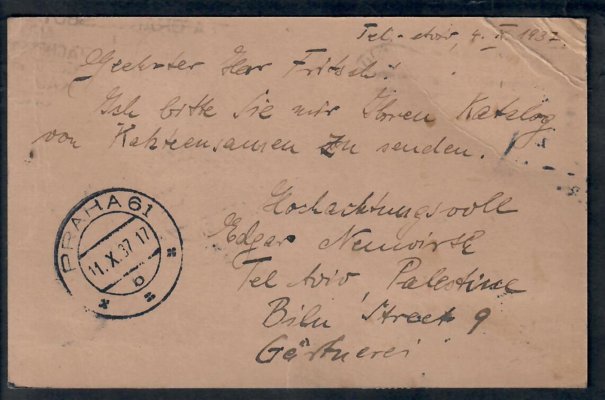 Tel-Aviv, 4. X 1937.
Geehrter Herr Fritsch!
Ich bitte Sie mir Ihren Katalog
von Kakteensamen zu senden.
Hochachtungsvoll
Edgar
Tel Aviv, Palestine
Bilu Street 9
Gärtnerei
PRAHA 61
11.X.37.17
b